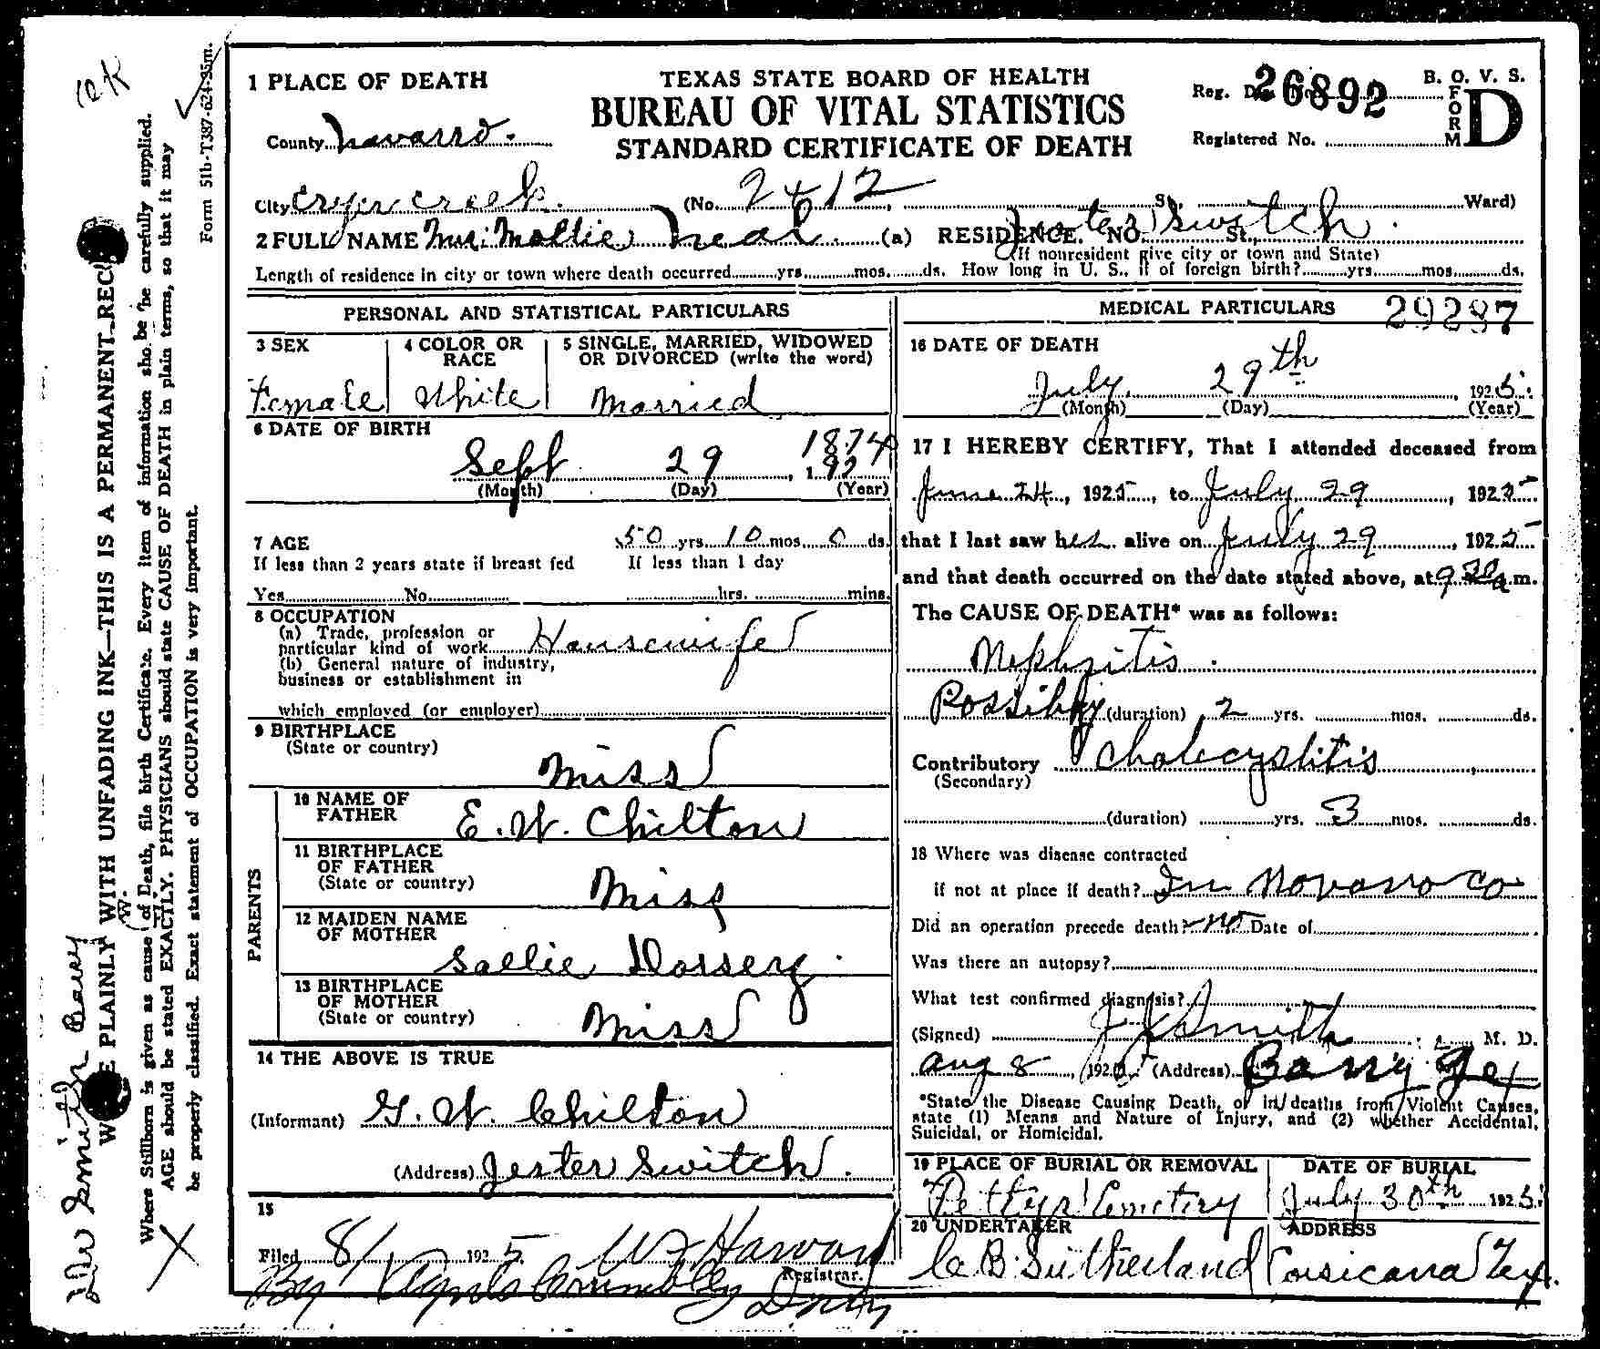 1 PLACE OF DEATH
TEXAS STATE BOARD OF HEALTH
BUREAU OF VITAL STATISTICS
STANDARD CERTIFICATE OF DEATH
Reg. Dis. No. 26892
Registered No.
B. O. V. S.
FORM D
County Navarro.
City Cryer creek. (No. 2412, St., Ward)
2 FULL NAME Mrs. Mollie Neal (a) RESIDENCE. NO. St., Jester Switch.
(If nonresident give city or town and State)
Length of residence in city or town where death occurred yrs. mos. ds. How long in U. S., if of foreign birth? yrs. mos. ds.
PERSONAL AND STATISTICAL PARTICULARS
3 SEX
Female
4 COLOR OR RACE
White
5 SINGLE, MARRIED, WIDOWED OR DIVORCED (write the word)
Married
6 DATE OF BIRTH
1874
Sept 29, 192
(Month) (Day) (Year)
7 AGE 50 yrs. 10 mos. 0 ds.
If less than 2 years state if breast fed If less than 1 day
Yes No hrs. mins.
8 OCCUPATION
(a) Trade, profession or
particular kind of work Housewife
(b) General nature of industry,
business or establishment in
which employed (or employer)
9 BIRTHPLACE
(State or country)
Miss
PARENTS
10 NAME OF FATHER
E. W. Chilton
11 BIRTHPLACE OF FATHER
(State or country)
Miss
12 MAIDEN NAME OF MOTHER
Sallie Dorsery
13 BIRTHPLACE OF MOTHER
(State or country)
Miss
14 THE ABOVE IS TRUE
(Informant) G. W. Chilton
(Address) Jester Switch.
15
Filed 8/ 1925
Registrar.
By Crumbley
MEDICAL PARTICULARS 29287
16 DATE OF DEATH
July 29th, 1925.
(Month) (Day) (Year)
17 I HEREBY CERTIFY, That I attended deceased from
June 24, 1925, to July 29, 1925
that I last saw her alive on July 29, 1925
and that death occurred on the date stated above, at 9 30 a.m.
The CAUSE OF DEATH* was as follows:
Nephritis.
Possibly (duration) 2 yrs. mos. ds.
Contributory Cholecystitis
(Secondary)
(duration) yrs. 3 mos. ds.
18 Where was disease contracted
if not at place if death? In Novarro Co
Did an operation precede death? no Date of
Was there an autopsy?
What test confirmed diagnosis?
(Signed) Smith M. D.
Aug 8, 192 (Address) Barry Tex
*State the Disease Causing Death, or in deaths from Violent Causes,
state (1) Means and Nature of Injury, and (2) whether Accidental,
Suicidal, or Homicidal.
19 PLACE OF BURIAL OR REMOVAL
Pettys Cemetery
DATE OF BURIAL
July 30th 1925.
20 UNDERTAKER
C B Sutherland
ADDRESS
Corsicana Tex.
OK
Form 51b-T387-624-35m.
WRITE PLAINLY WITH UNFADING INK—THIS IS A PERMANENT RECORD
Where Stillborn is given as cause of Death, file birth Certificate. Every item of information sho be be carefully supplied.
AGE should be stated EXACTLY. PHYSICIANS should state CAUSE OF DEATH in plain terms, so that it may
be properly classified. Exact statement of OCCUPATION is very important.
Smith Barry
X